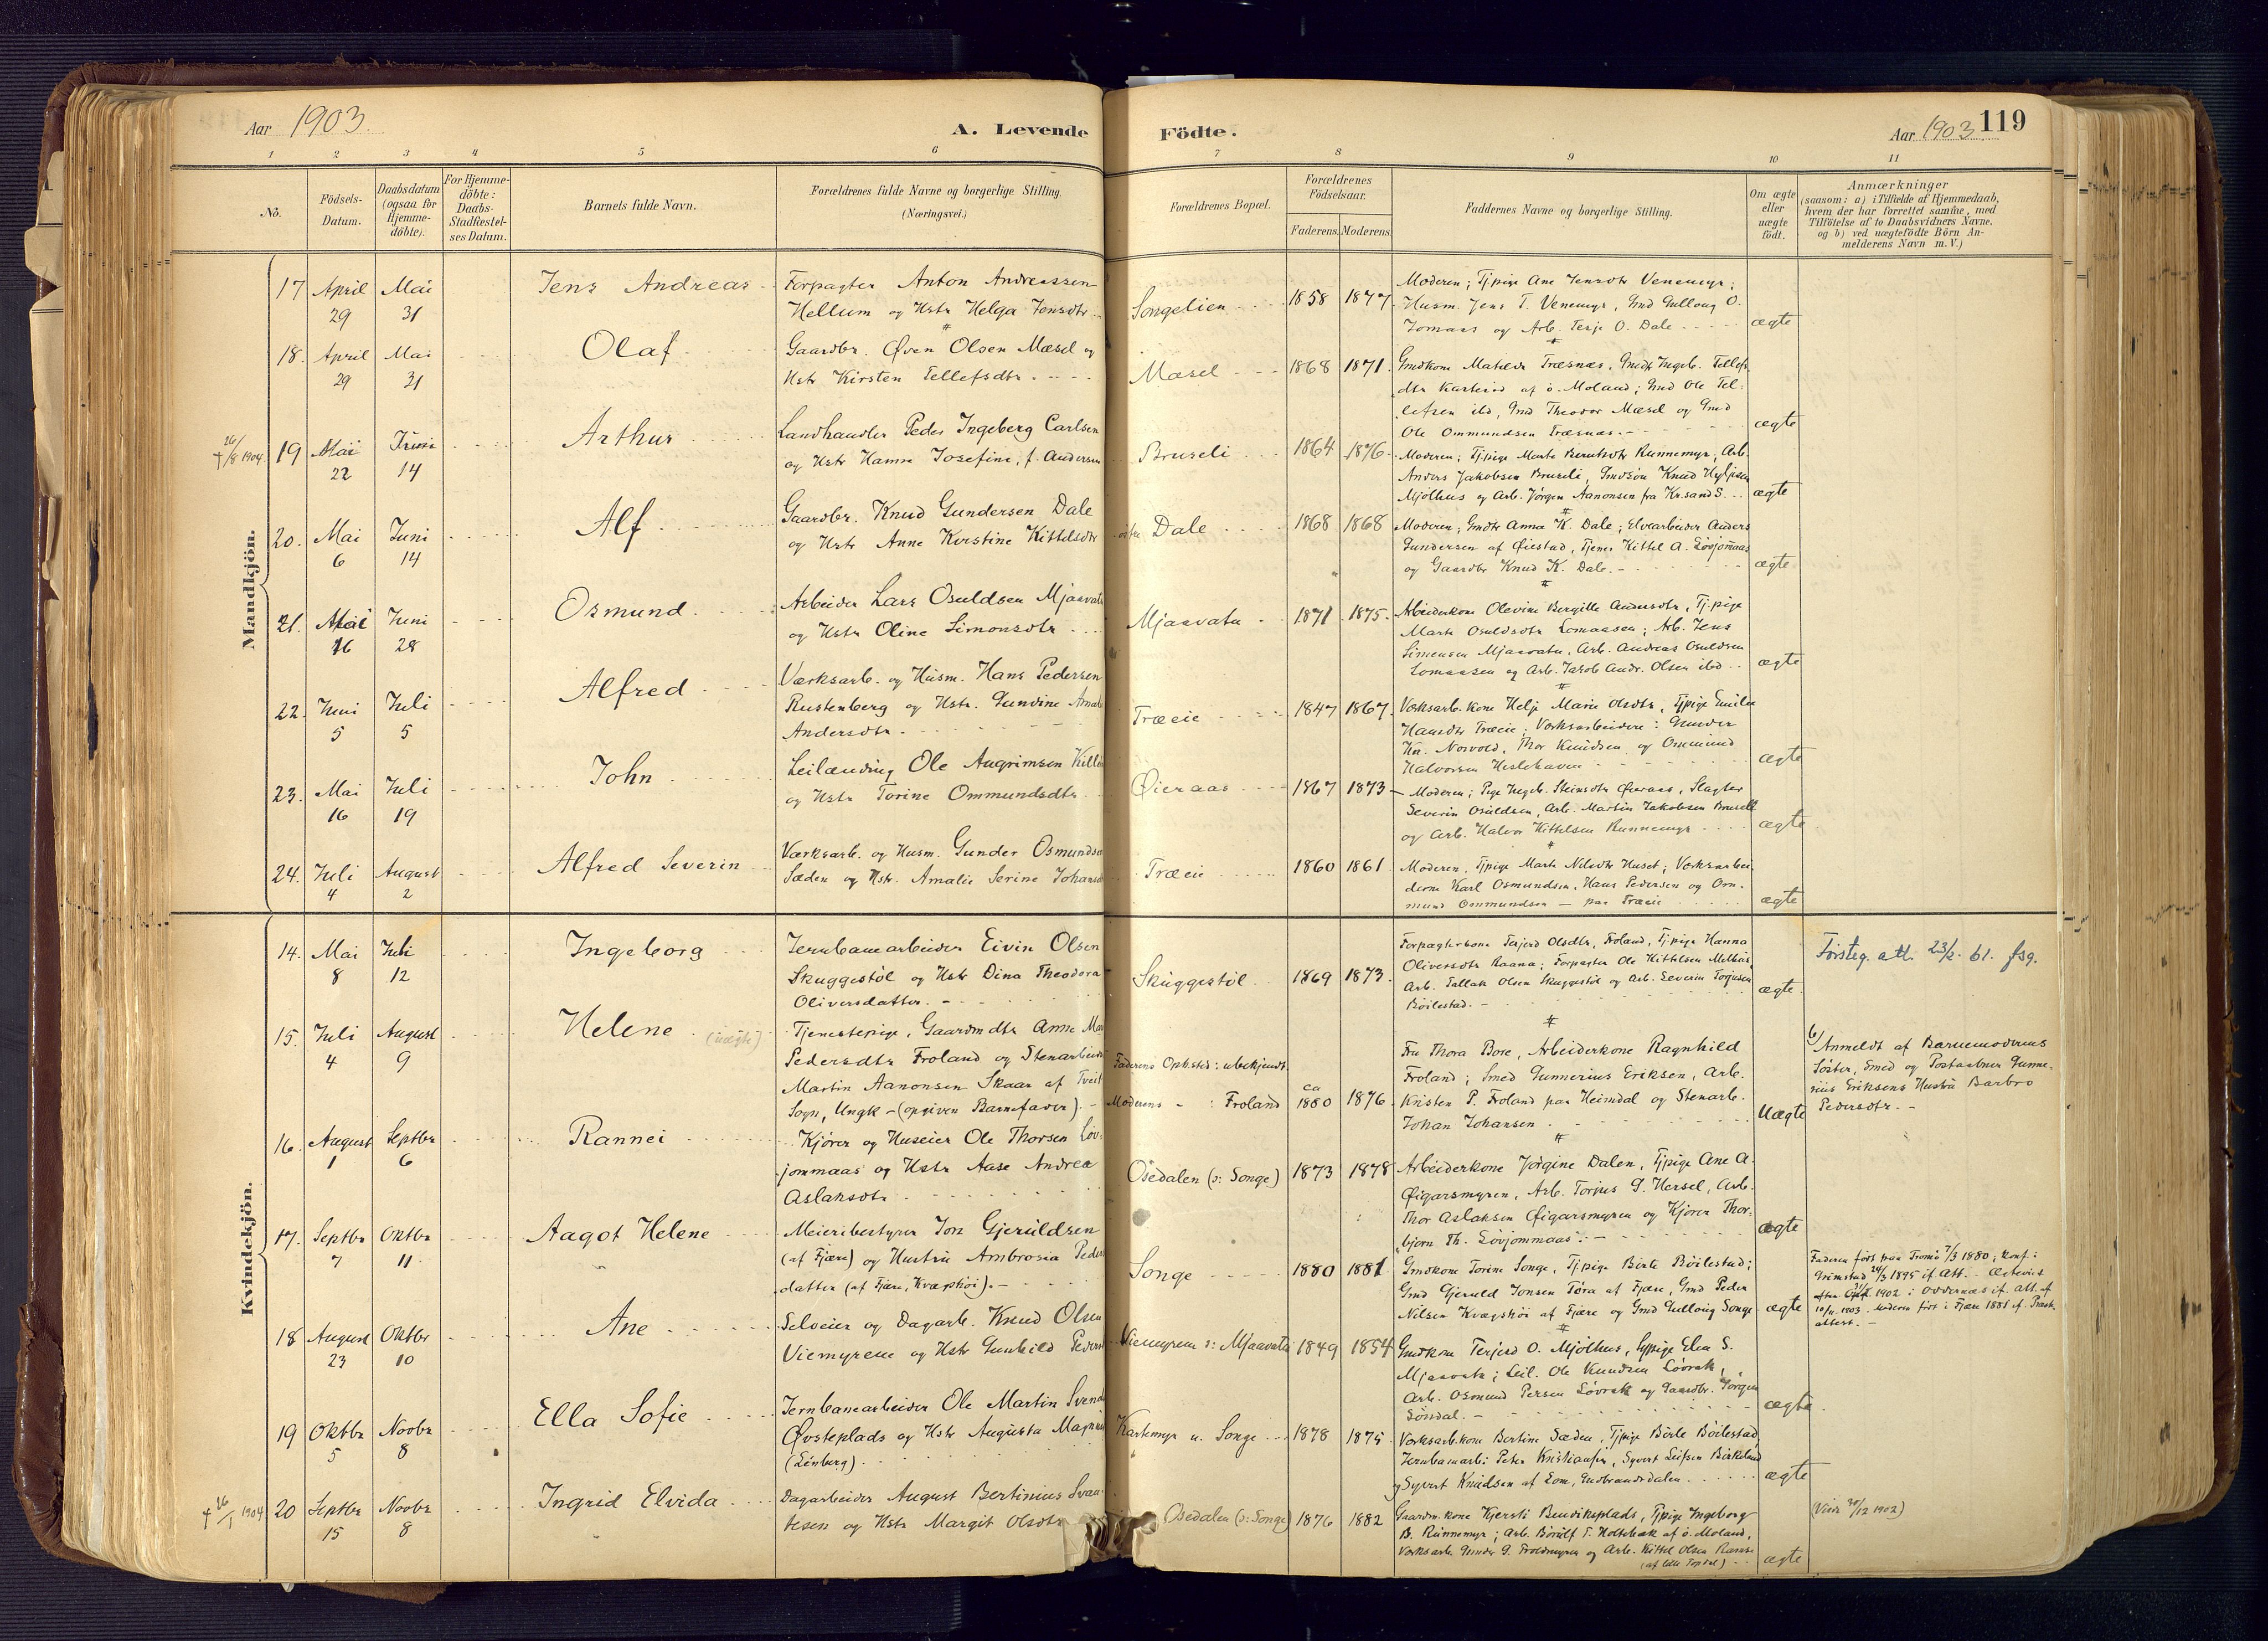 Aar 1903.
A. Levende
Födte.
Aar 1903
119
1 2 3 4 5 6 7 8 9 10 11
No.
Födsels-
Datum.
Daabsdatum
(ogsaa for
Hjemme-
döbte).
For Hjemme-
döbte:
Daabs-
Stadfæstel-
ses Datum.
Barnets fulde Navn.
Forældrenes fulde Navne og borgerlige Stilling.
(Næringsvei.)
Forældrenes Bopæl.
Forældrenes
Födselsaar.
Faderens.
Moderens.
Faddernes Navne og borgerlige Stilling.
Om ægte
eller
uægte
födt.
Anmærkninger
(saasom: a) i Tilfælde af Hjemmedaab,
hvem der har forrettet samme, med
Tilföielse af to Daabsvidners Navne.
og b) ved uægtefödte Börn An-
melderens Navn m. V.)
Mandkjön.
17 April 29 Mai 31 Jens Andreas
Forpagter Anton Andreassen
Hellum og Hstr Helga Jensdtr
Songelien 1858 1877
Moderen; Tjpige Ane Jensdtr Venemyr;
Husm. Jens T. Venemyr, Gmd Gullong O.
Lomaas og Arb. Terje O. Dale
ægte
18. April 29 Mai 31 Olaf
Gaardbr. Øven Olsen Mæsel og
Hstr Kirsten Tellefsdtr.
Mæsel 1868 1871.
Gmdkone Matilde Træsnæs, Gmdtr Ingeb. Tellefs
dtr af ö. Moland; Gmd Ole Tel-
lefsen ibd, Gmd Theodor Mæsel og Gmd
Ole Ommundsen Træsnæs.
ægte
† 26/8 1904. 19 Mai 22 Juni 14 Arthur
Landhandler Peder Ingeberg Carlsen
og Hstr Hanna Josefine, f. Andersen
Bruseli 1864 1876.
Moderen; Tjpige Marte Berntsdtr Runnemyr; Arb.
Anders Jakobsen Bruseli, Gmdsön Knud
Mjölhus og Arb. Jörgen Aanonsen fra Kr.sand S.
ægte
20. Mai 6 Juni 14 Alf
Gaardbr. Knud Gundersen Dale
og Hstr Anne Kirstine Kittelsdtr
Dale 1868 1868
Moderen; Gmdtr Anna K. Dale; Elvearbeider Anders
Gundersen af Øiestad, Tjener Kittel A. Lövjomaas
og Gaardbr Knud K. Dale.
ægte
21. Mai 16 Juni 28 Osmund
Arbeider Lars Osuldsen Mjaavatn
og Hstr Oline Simonsdtr
Mjaavatn 1871 1875.
Arbeiderkone Olevine Bergitte Andersdtr, Tj.pige
Marte Osuldsdtr Lomaasen; Arb. Jens
Simensen Mjaavatn, Arb. Andreas Osuldsen
Lomaasen og Arb. Jakob Andr. Olsen ibd
ægte
22. Juni 5 Juli 5 Alfred
Værksarb. og Husm. Hans Pedersen
Rustenberg og Hstr. Gundine Amalie
Andersdtr.
Træeie 1847 1867.
Værksarb.kone Helje Marie Olsdtr, Tjpige Emilie
Hansdtr Træeie; Værksarbeidere: Gunder
Kn. Norvold, Thor Knudsen og Ommund
Halvorsen Heslehaven
ægte
23. Mai 16 Juli 19 John
Leilænding Ole Augrimsen
og Hstr Torine Ommundsdtr
Øieraas 1867 1873
Moderen; Pige Ingeb. Steinsdtr Øieraas, Slagter
Severin Osuldsen, Arb. Martin Jakobsen Bruseli
og Arb. Halvor Kittelsen Runnemyr
ægte
24. Juli 4 August 2 Alfred Severin
Værksarb. og Husm. Gunder Osmundsen
Sæden og Hstr. Amalie Serine Johansd
Træeie 1860 1861.
Moderen, Tjpige Marte Nilsdtr Huset; Værksarbei-
derne Karl Osmundsen, Hans Pedersen og Om-
mund Ommundsen - paa Træeie
ægte
Kvindekjön.
14. Mai 8 Juli 12 Ingeborg
Jernbanearbeider Eivin Olsen
Skuggestöl og Hstr Dina Theodora
Oliversdatter.
Skuggestöl 1869 1873.
Forpagterkone Terjerd Olsdtr, Froland, Tj.pige Hanna
Oliversdtr Raana; Forpagter Ole Kittelsen Mölhus,
Arb. Tallak Olsen Skuggestöl og Arb. Severin Torjusen
Böilestad.
ægte.
Förste. att. 23/2. 61. fsg.
15. Juli 4 August 9 Helene (uægte)
Tjenestepige, Gaardmdtr Anne Mar
Pedersdtr Froland og Stenarbeid
Martin Aanonsen Skaar af Tveit
Sogn, Ungk - (opgiven Barnefader).
Faderens Oph.sted: ubekjendt.
Moderens - : Froland ca 1880 1876.
Fru Thora Bore, Arbeiderkone Ragnhild
Froland; Smed Gunnerius Eriksen, Arb.
Kristen P. Froland paa Heimdal og Stenarb.
Johan Johansen
Uægte
b) Anmeldt af Barnemoderens
Söster, Smed og Postaabner Gunne-
rius Eriksens Hustru Barbro
Pedersdtr.
16. August 1 Septbr 6 Rannei
Kjörer og Huseier Ole Thorsen Löv-
jommaas og Hstr Aase Andrea
Aslaksdtr.
Osedalen (s: Songe) 1873 1878
Arbeiderkone Jörgine Dalen, Tjpige Ane A.
Øigarsmyren, Arb. Torjus G. Hersel, Arb.
Thor Aslaksen Øigarsmyren og Kjörer Thor-
björn Th. Lövjommaas.
ægte
17. Septbr 7 Oktbr 11 Aagot Helene
Meieribestyrer Jon Gjeruldsen
(af Fjære) og Hustru Ambrosia Peders
datter (af Fjære, Kvæphöi).
Songe 1880 1881
Gmdkone Torine Songe, Tjpige Birte Böilestad;
Gmd Gjeruld Jonsen Töra af Fjære, Gmd Peder
Nilsen Kvæphöi af Fjære og Gmd Gullong Songe
ægte
Faderen föst paa Tromö 7/3 1880; konf. i
Grimstad 24/3 1895 if. Att. - Ægteviet
1902 i Oddernæs if. Att. af
10/11. 1903. Moderen föst i Fjære 1881 if. Præste
attest.
18 August 23 Oktbr 10 Ane
Selveier og Dagarb. Knud Olsen
Viemyrene og Hstr Gunhild Peders
Viemyrene s: Mjaavatn 1849 1854
Gmdkone Terjerd O. Mjölhus, Tjpige Elen S.
Mjaavatn; Leil. Ole Knudsen Lövrak,
Arb. Osmund Persen Lövrak og Gaardbr. Jörgen
Löndal.
ægte.
19 Oktbr 5 Novbr 8 Ella Sofie
Jernbanearbeider Ole Martin Svends
Øvsteplads og Hstr Augusta Magnus
(Lönberg).
Kartemyr u. Songe 1878 1875
Værksarb.kone Bertine Sæden, Tjpige Börte Böilestad
Jernbanearb. Peter Kristiansen, Syvert Leifsen Birkeland
og Syvert Knudsen af Lom, Gudbrandsdalen
ægte
† 26/1 1904 20 Septbr 15 Novbr 8 Ingrid Elvida
Dagarbeider August Bertinius Svan-
tesen og Hstr Margit Olsdtr
Osedalen (s: Songe) 1876 1882
Gaardm.kone Kjersti Bendiksplads, Tjpige Ingeborg
B. Runnemyr; Arb. Börulf T. Holtebæk af ö. Moland,
Værksarb. Gunder G. Froldmyren og Arb. Kittel Olsen Ramse
(af lille Topdal)
ægte
(Viede 30/12 1902)